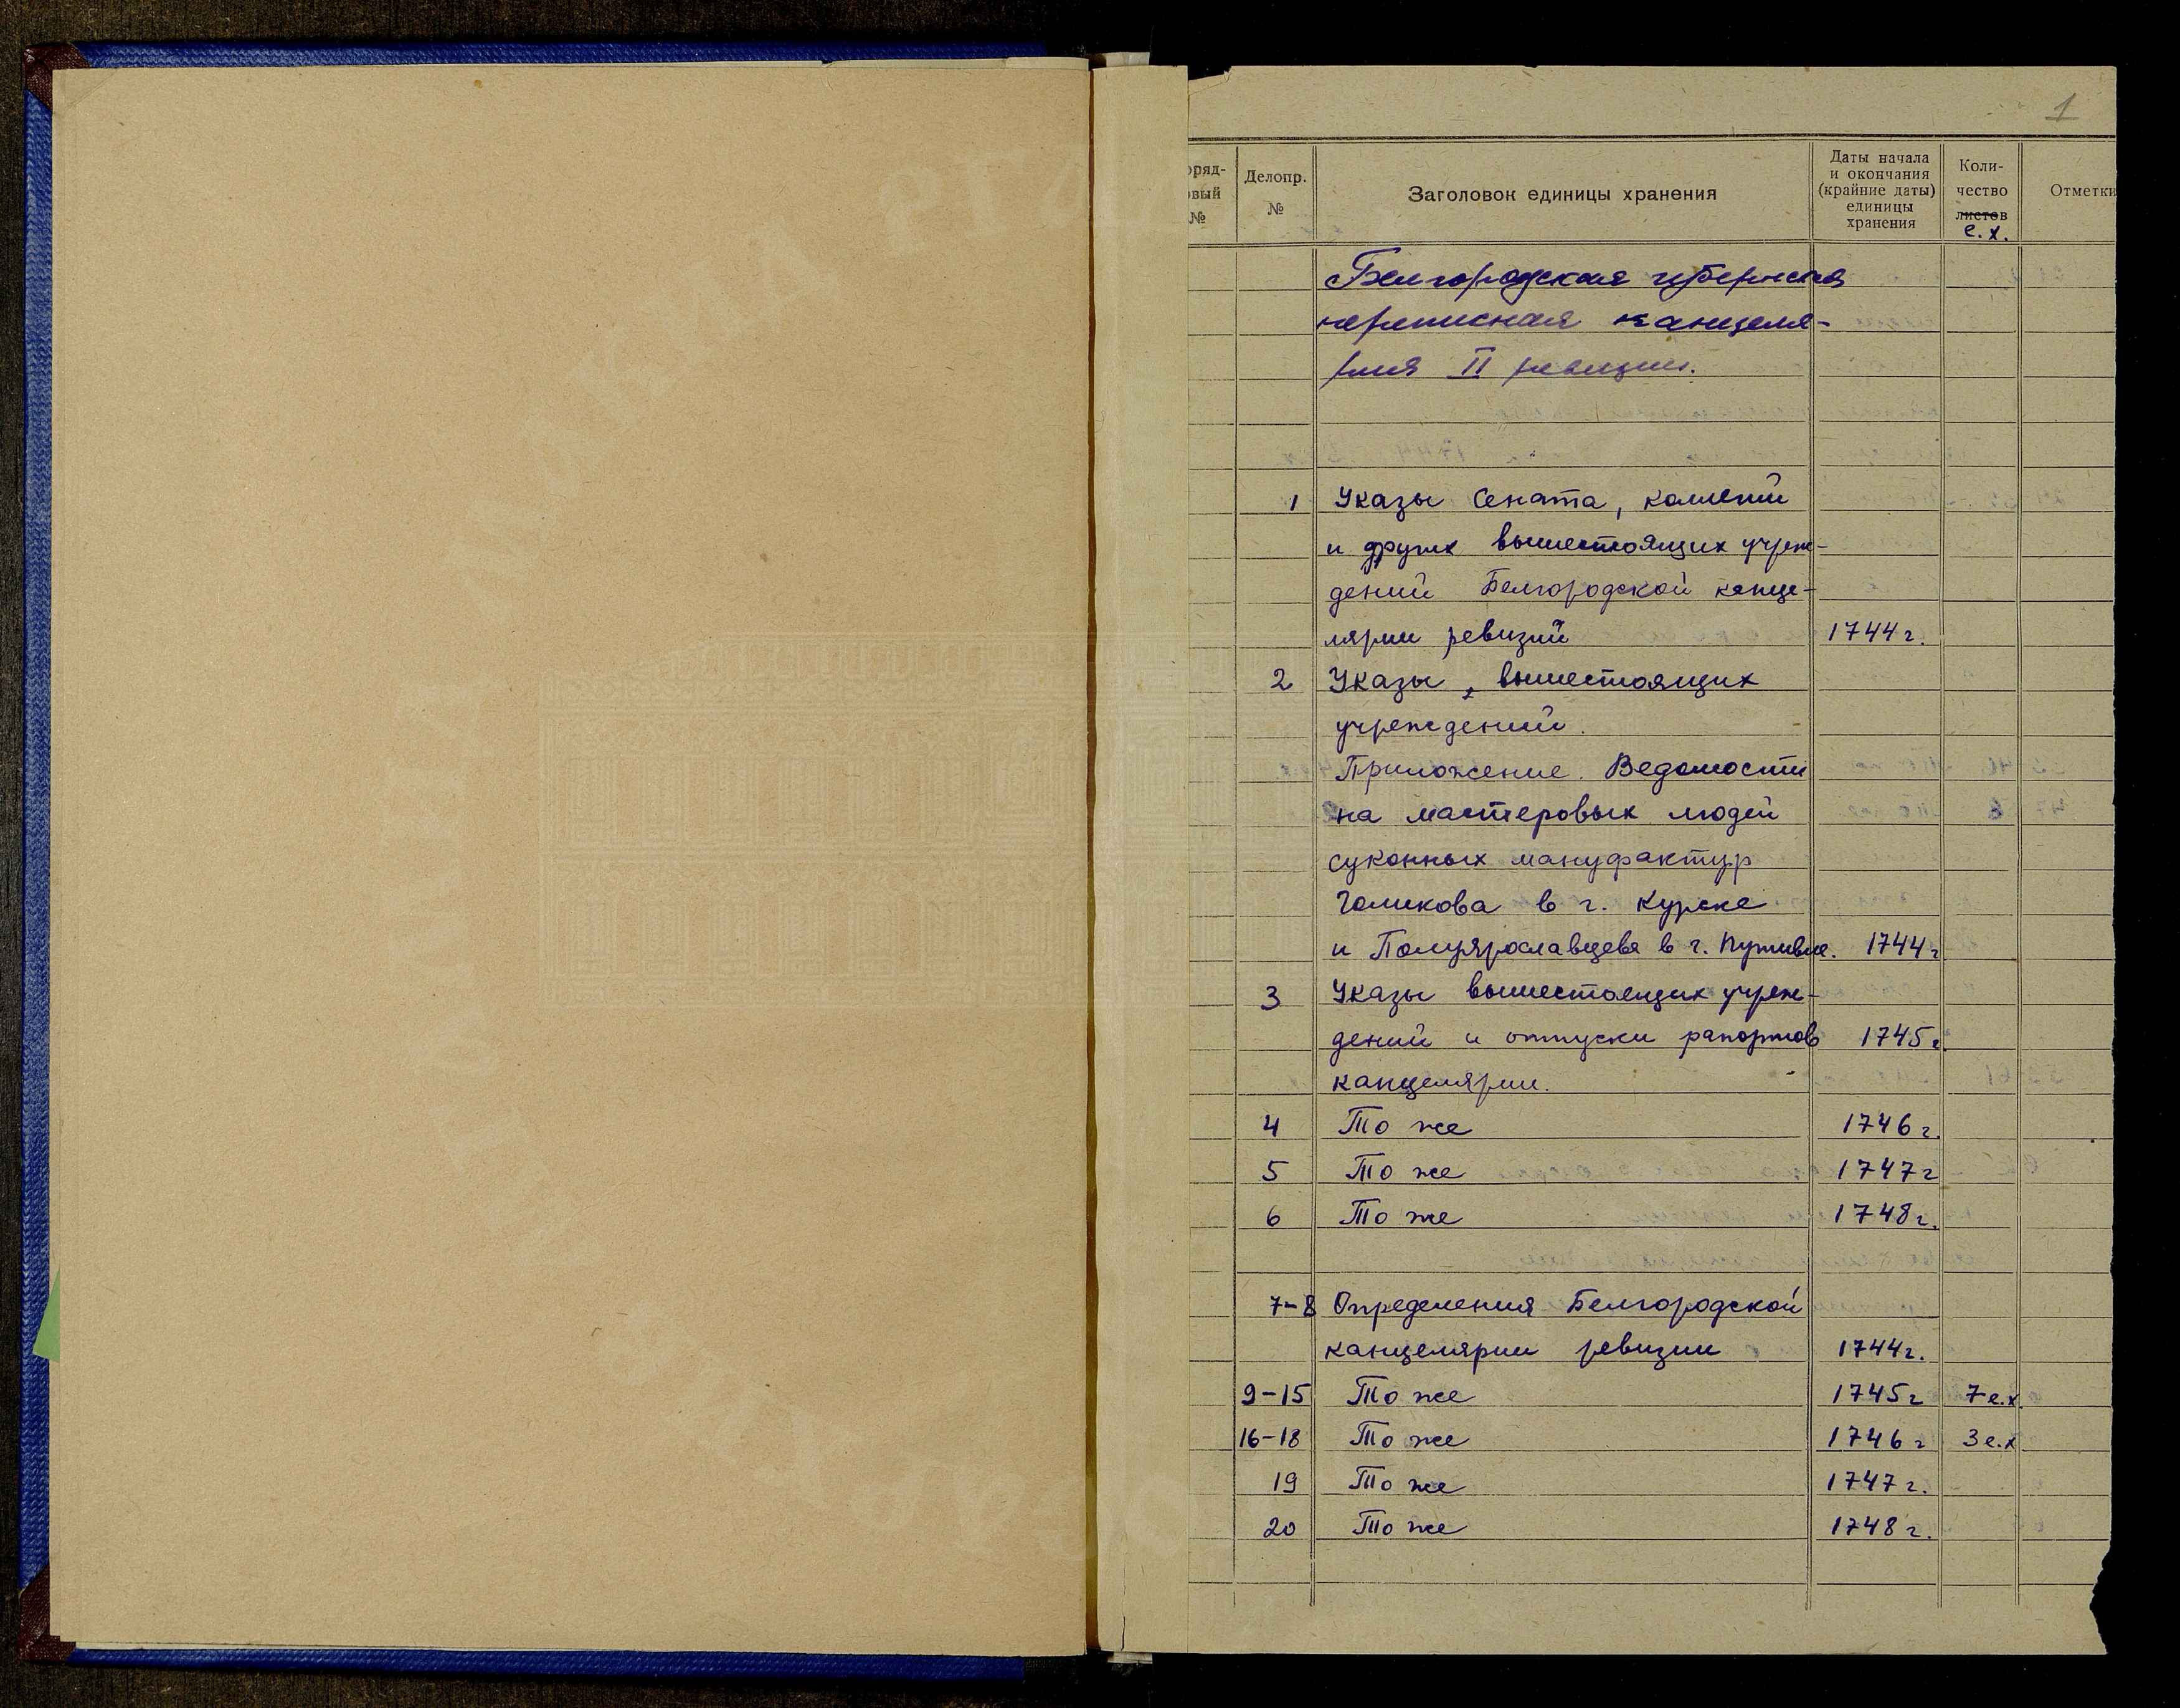 1
оряд-
овый
№
Делопр.
№
Заголовок единицы хранения
Даты начала
и окончания
(крайние даты)
единицы
хранения
Коли-
чество
листов
е.х.
Отметки
Белгородская губернская
переписная канцеля-
рия II ревизии.
1 Указы Сената, коллегий
и других вышестоящих учреж-
дений Белгородской канце-
лярии ревизий 1744 г.
2 Указы, вышестоящих
учреждений.
Приложение. Ведомости
на мастеровых людей
суконных мануфактур
Голикова в г. Курске
и Полуярославцева в г. Путивле. 1744 г
3 Указы вышестоящих учреж-
дений и отпуски рапортов 1745 г.
канцелярии.
4 То же 1746 г.
5 То же 1747 г
6 То же 1748 г.
7-8 Определения Белгородской
канцелярии ревизии 1744 г.
9-15 То же 1745 г 7 е.х.
16-18 То же 1746 г 3 е.х
19 То же 1747 г.
20 То же 1748 г.